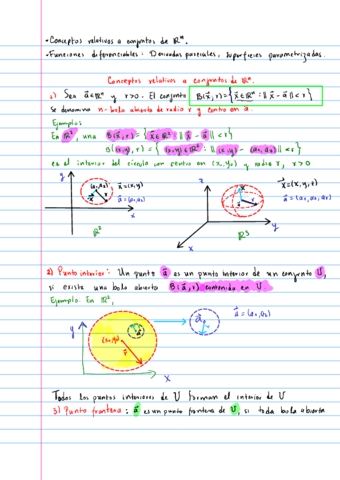 -Conceptos relativos a conjuntos de ℝⁿ.
-Funciones diferenciables: Derivadas parciales, superficies parametrizadas.
Conceptos relativos a conjuntos de ℝⁿ.
1) Sea a⃗∈ℝⁿ y r>0. El conjunto B(x⃗,r)={x⃗∈ℝⁿ: ||x⃗-a⃗||<r}
se denomina n-bola abierta de radio r y centro en a.
Ejemplo:
En ℝ², una B(x⃗,r)={x⃗∈ℝ²: ||x⃗-a⃗||<r}
B(x,y,r)={(x,y)∈ℝ²: ||(x,y)-(a₁,a₂)||<r}
es el interior del círculo con centro en (x,y) y radio r, r>0
y
(a₁,a₂)
x⃗=(x,y)
a⃗=(a₁,a₂)
r
x
ℝ²
z
x⃗=(x,y,z)
a⃗=(a₁,a₂,a₃)
y
x
ℝ³
2) Punto interior: Un punto a⃗ es un punto interior de un conjunto U,
si existe una bola abierta B(a⃗,r) contenido en U
Ejemplo: En ℝ²,
y
(x,y)
r
a⃗
a⃗=(a₁,a₂)
x
Todos los puntos interiores de U forman el interior de U
3) Punto frontera: a⃗ es un punto frontera de U, si toda bola abierta